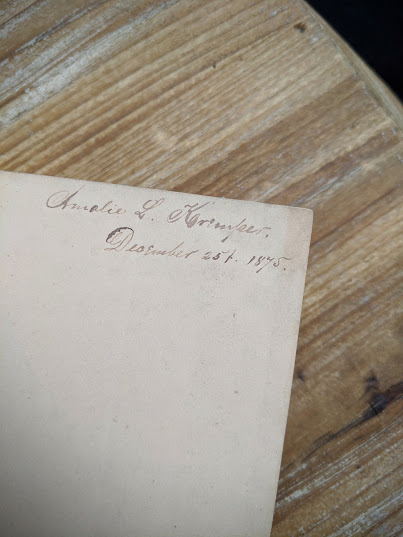 Amalie L. Kremper.
December 25t. 1875.